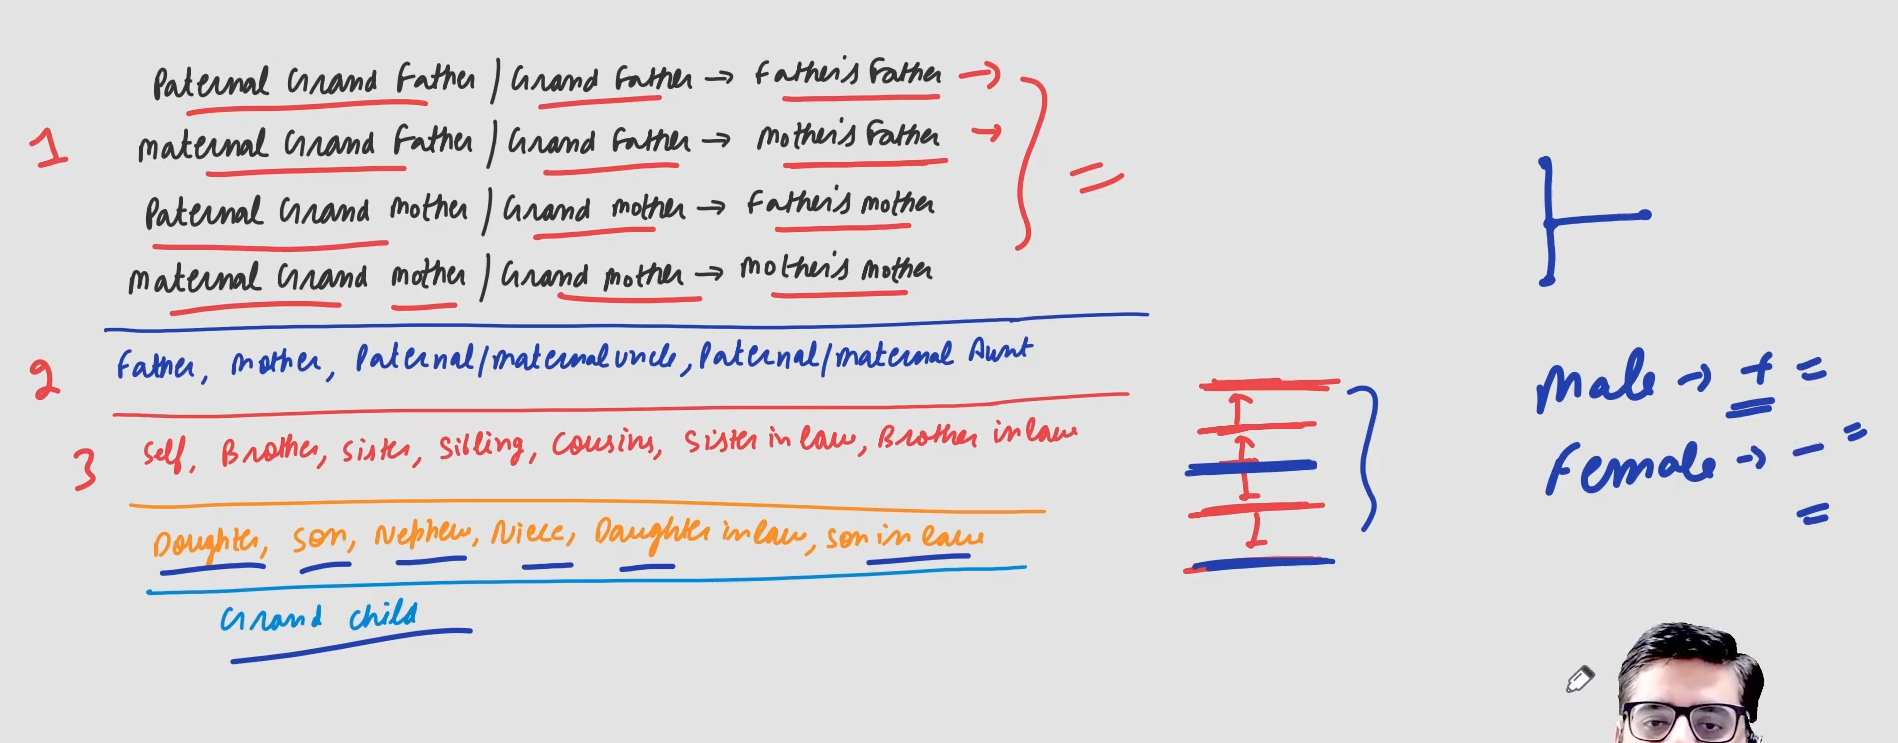 Paternal Grand Father / Grand Father → Father's Father →
1
Maternal Grand Father / Grand Father → Mother's Father →
Paternal Grand Mother / Grand Mother → Father's Mother
Maternal Grand Mother / Grand Mother → Mother's Mother
2
Father, Mother, Paternal/Maternal uncle, Paternal/Maternal Aunt
3
Self, Brother, Sister, Sibling, Cousins, Sister in law, Brother in law
Doughter, Son, Nephew, Niece, Daughter in law, Son in law
Grand Child
Male → + =
Female → - =
=